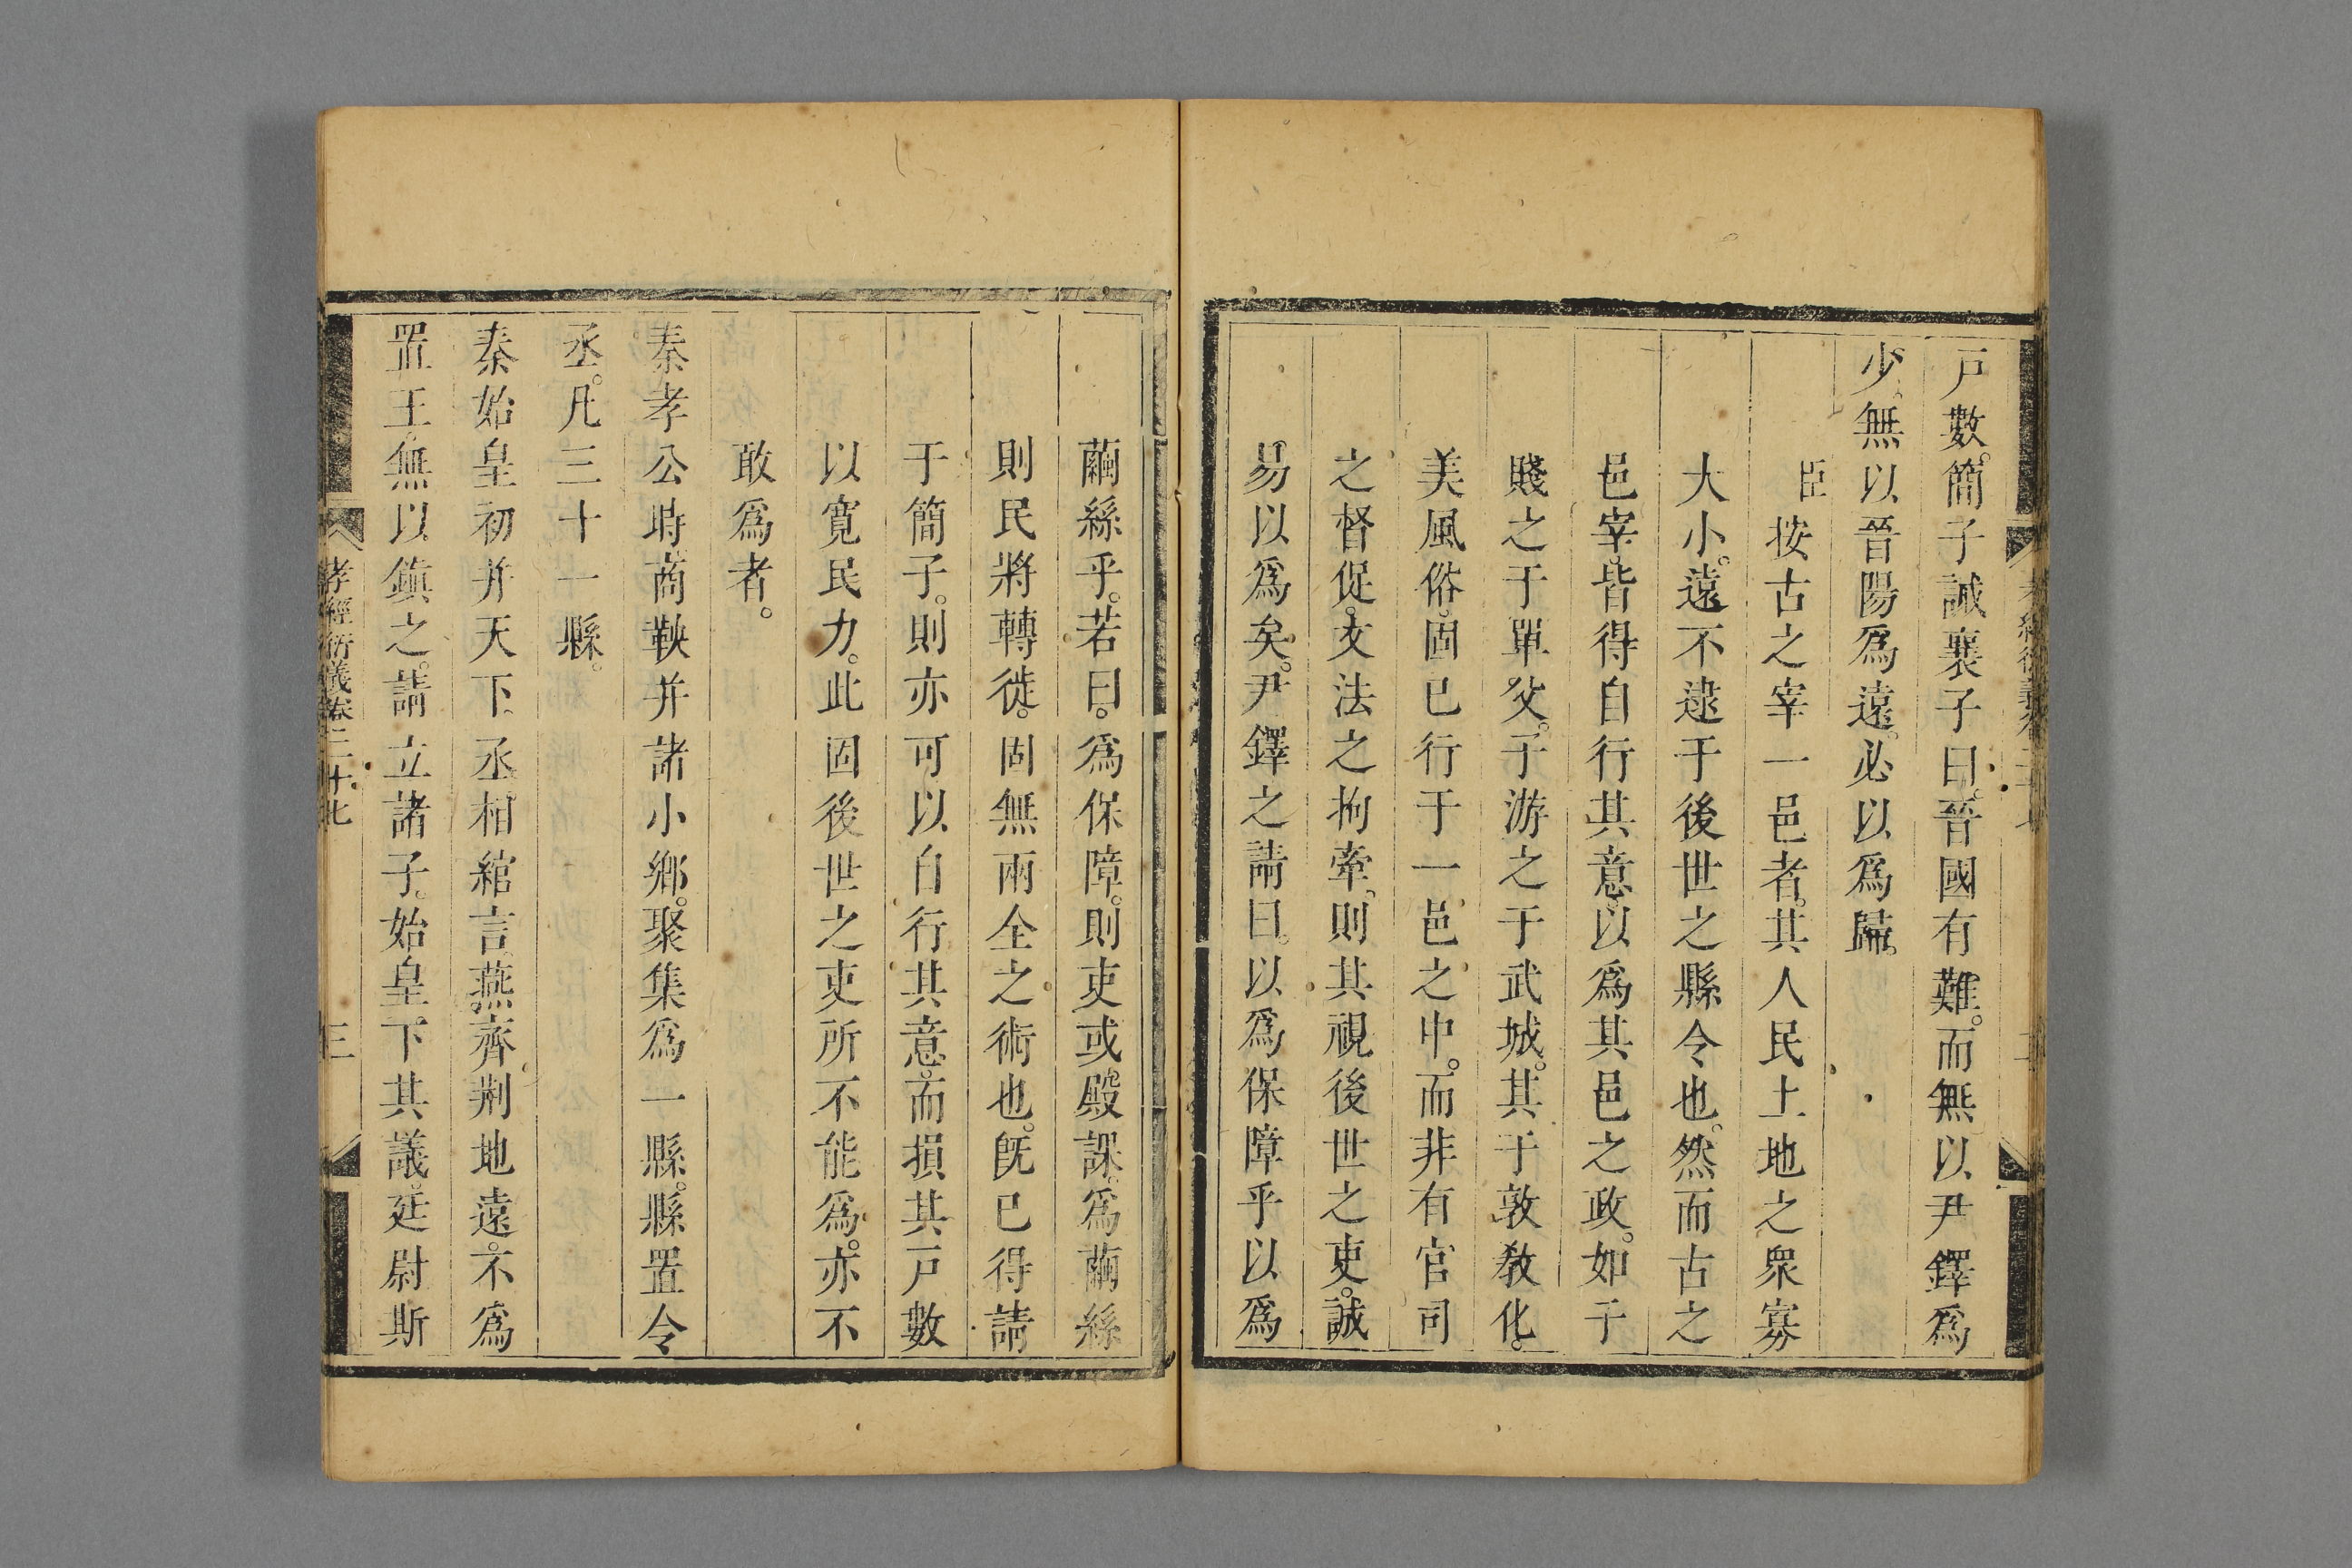 戶數。簡子誡襄子曰。晉國有難。而無以尹鐸爲
少。無以晉陽爲遠。必以爲歸。
臣按古之宰一邑者。其人民土地之衆寡
大小。遠不逮于後世之縣令也。然而古之
邑宰。皆得自行其意。以爲其邑之政。如子
賤之于單父。子游之于武城。其于敦敎化。
美風俗。固已行于一邑之中。而非有官司
之督促。文法之拘牽。則其視後世之吏。誠
易以爲矣。尹鐸之請曰。以爲保障乎以爲
繭絲乎。若曰。爲保障。則吏或殿課。爲繭絲
則民將轉徙。固無兩全之術也。旣已得請
于簡子。則亦可以自行其意。而損其戶數
以寬民力。此固後世之吏所不能爲。亦不
敢爲者。
秦孝公時商鞅并諸小鄉。聚集爲一縣。縣置令
丞。凡三十一縣。
秦始皇初并天下。丞相綰言。燕齊荆地遠。不爲
置王。無以鎮之。請立諸子。始皇下其議。廷尉斯
孝經衍義卷三十七
三